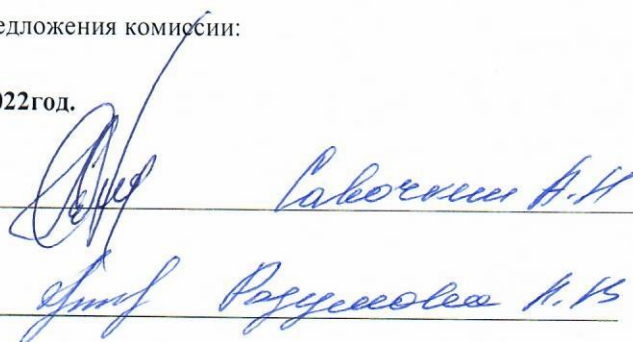 едложения комиссии:
022год.
Савочкин А.Н
Разумова Н.В